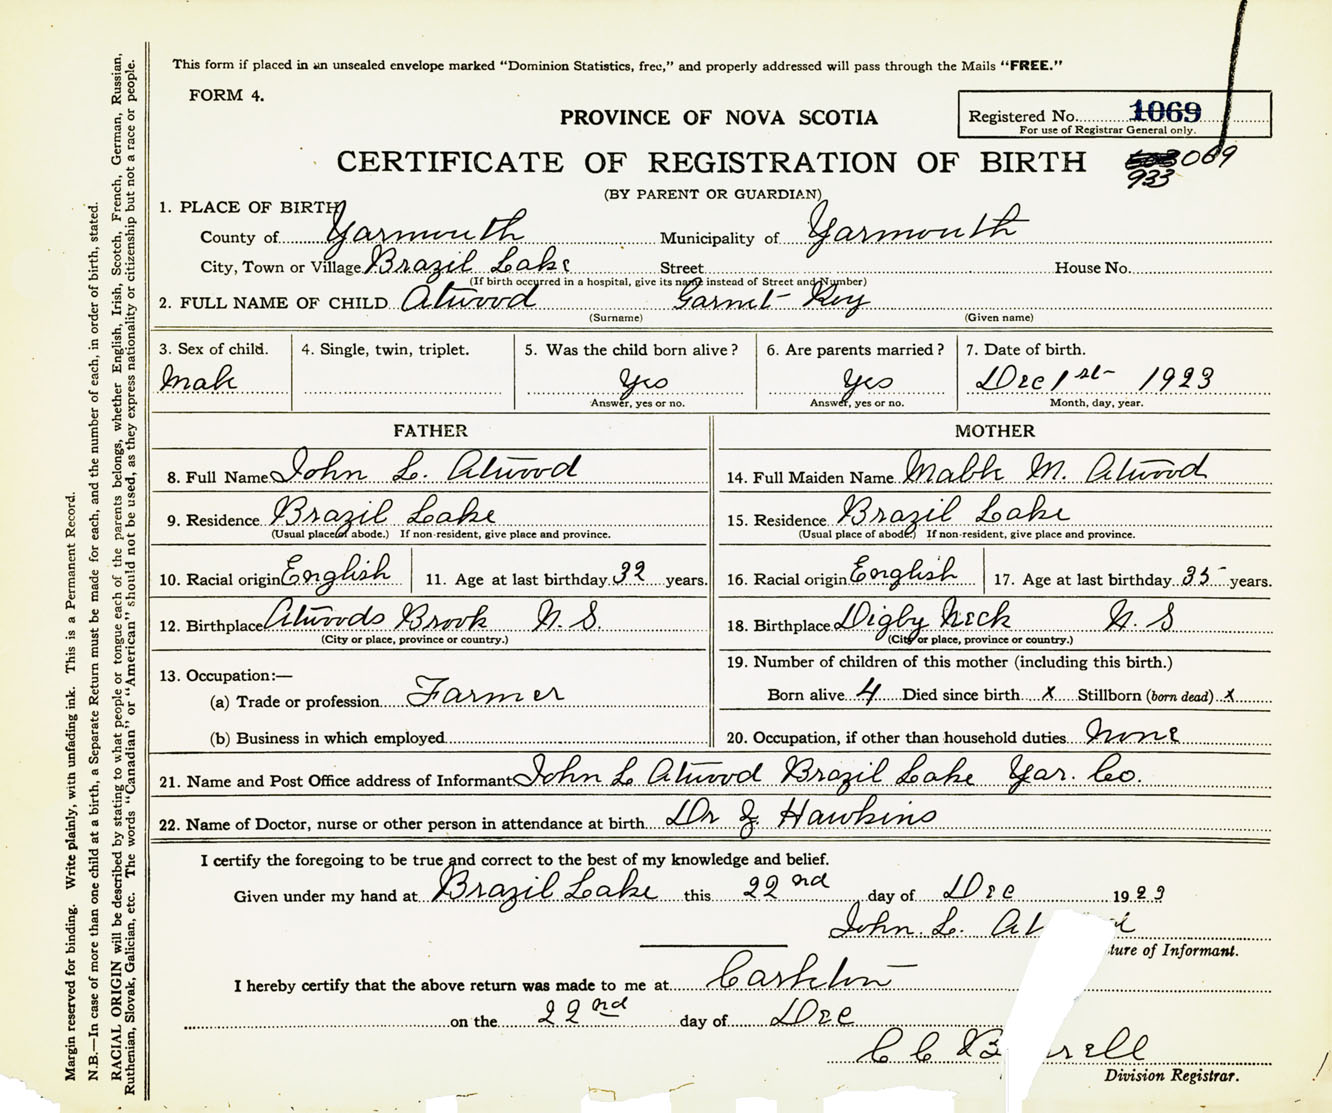 This form if placed in an unsealed envelope marked "Dominion Statistics, free," and properly addressed will pass through the Mails "FREE."
FORM 4.
PROVINCE OF NOVA SCOTIA
Registered No. 1069
For use of Registrar General only.
CERTIFICATE OF REGISTRATION OF BIRTH
069
933
(BY PARENT OR GUARDIAN)
1. PLACE OF BIRTH
County of Yarmouth Municipality of Yarmouth
City, Town or Village Brazil Lake Street House No.
(If birth occurred in a hospital, give its name instead of Street and Number)
2. FULL NAME OF CHILD Atwood Garnet Roy
(Surname) (Given name)
3. Sex of child. 4. Single, twin, triplet. 5. Was the child born alive? 6. Are parents married? 7. Date of birth.
Male Yes Yes Dec 1st 1923
Answer, yes or no. Answer, yes or no. Month, day, year.
FATHER MOTHER
8. Full Name John L. Atwood 14. Full Maiden Name Mable M. Atwood
9. Residence Brazil Lake 15. Residence Brazil Lake
(Usual place of abode.) If non-resident, give place and province. (Usual place of abode.) If non-resident, give place and province.
10. Racial origin English 11. Age at last birthday 32 years. 16. Racial origin English 17. Age at last birthday 35 years.
12. Birthplace Atwoods Brook N. S. 18. Birthplace Digby Neck N. S
(City or place, province or country.) (City or place, province or country.)
13. Occupation:— 19. Number of children of this mother (including this birth.)
(a) Trade or profession Farmer Born alive 4 Died since birth x Stillborn (born dead) x
(b) Business in which employed 20. Occupation, if other than household duties None
21. Name and Post Office address of Informant John L Atwood Brazil Lake Yar. Co.
22. Name of Doctor, nurse or other person in attendance at birth Dr Hawkins
I certify the foregoing to be true and correct to the best of my knowledge and belief.
Given under my hand at Brazil Lake this 22nd day of Dec 1923
John L. At
ture of Informant.
I hereby certify that the above return was made to me at Carleton
on the 22nd day of Dec
C C B rell
Division Registrar.
Margin reserved for binding. Write plainly, with unfading ink. This is a Permanent Record.
N.B.—In case of more than one child at a birth, a Separate Return must be made for each, and the number of each, in order of birth, stated.
RACIAL ORIGIN will be described by stating to what people or tongue each of the parents belongs, whether English, Irish, Scotch, French, German, Russian,
Ruthenian, Slovak, Galician, etc. The words "Canadian" or "American" should not be used, as they express nationality or citizenship but not a race or people.